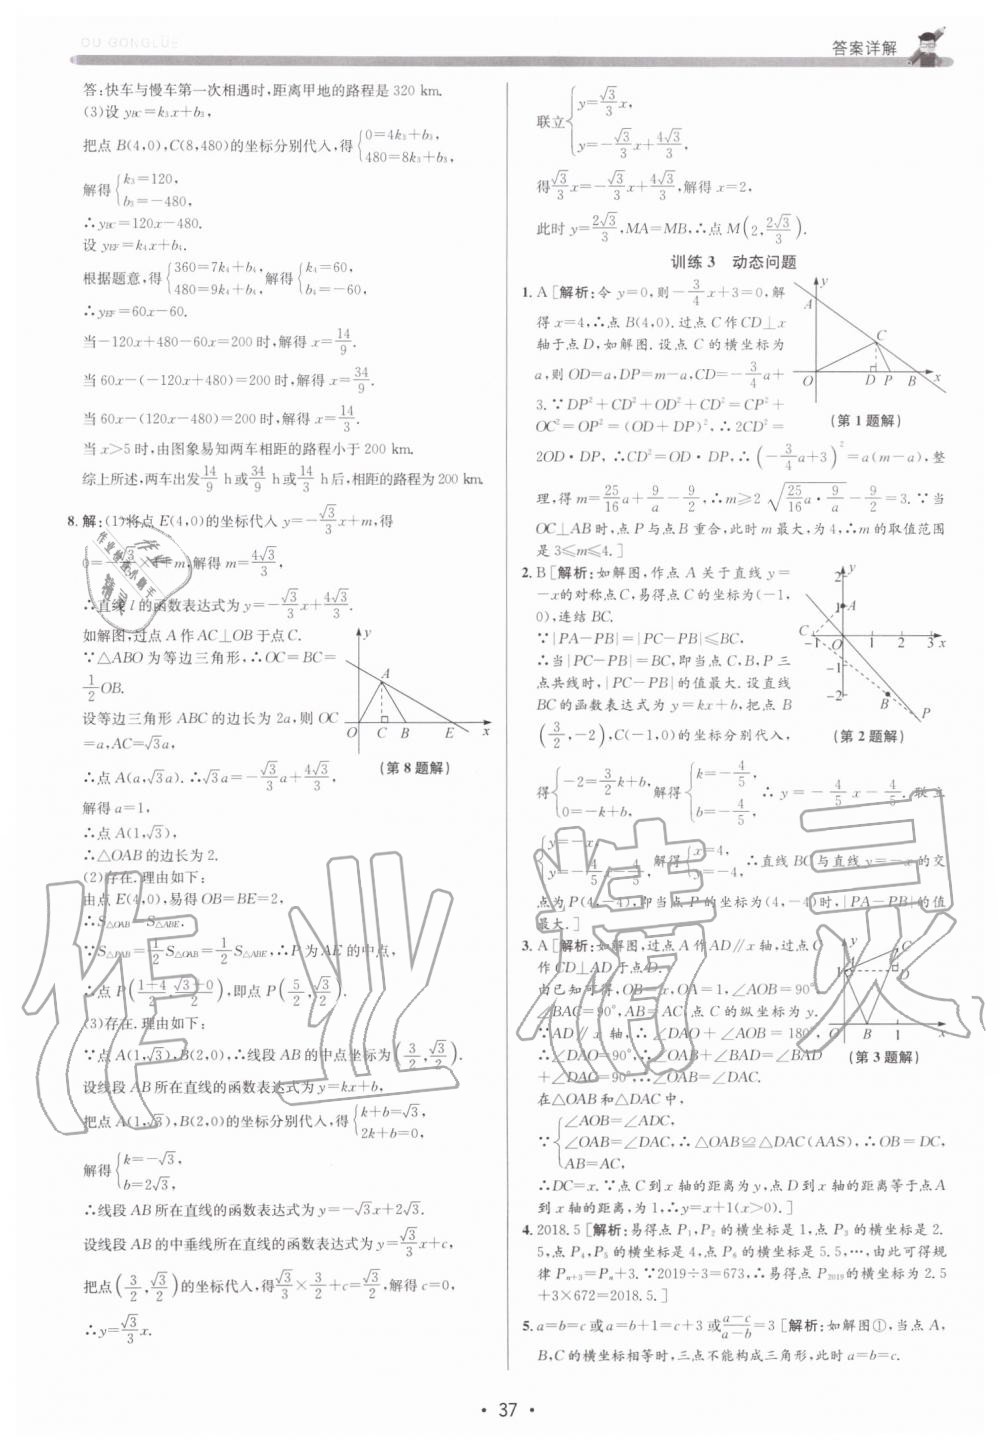 OU GONGLUE
答案详解
答:快车与慢车第一次相遇时,距离甲地的路程是 320 km.
(3)设 y_BC=k₃x+b₃,
把点 B(4,0),C(8,480)的坐标分别代入,得{0=4k₃+b₃, 480=8k₃+b₃,
解得{k₃=120, b₃=-480,
∴y_BC=120x-480.
设 y_EF=k₄x+b₄.
根据题意,得{360=7k₄+b₄, 480=9k₄+b₄, 解得{k₄=60, b₄=-60,
∴y_EF=60x-60.
当-120x+480-60x=200 时,解得 x=14/9.
当 60x-(-120x+480)=200 时,解得 x=34/9.
当 60x-(120x-480)=200 时,解得 x=14/3.
当 x>5 时,由图象易知两车相距的路程小于 200 km.
综上所述,两车出发14/9 h或34/9 h或14/3 h后,相距的路程为200 km.
8. 解:(1)将点 E(4,0)的坐标代入 y=-√3/3x+m,得
0=-√3/3×4+m,解得 m=4√3/3,
∴直线 l 的函数表达式为 y=-√3/3x+4√3/3.
如解图,过点 A 作 AC⊥OB 于点 C.
∵△ABO 为等边三角形,∴OC=BC=
1/2OB.
设等边三角形 ABC 的边长为 2a,则 OC
=a,AC=√3a,
∴点 A(a,√3a).∴√3a=-√3/3a+4√3/3,
解得 a=1,
∴点 A(1,√3),
∴△OAB 的边长为 2.
y
A
O C B E x
(第 8 题解)
(2)存在.理由如下:
由点 E(4,0),易得 OB=BE=2,
∴S△OAB=S△ABE.
∵S△PAB=1/2S△OAB=1/2S△ABE,∴P 为 AE 的中点,
∴点 P(1+4/2,√3+0/2),即点 P(5/2,√3/2).
(3)存在.理由如下:
∵点 A(1,√3),B(2,0),∴线段 AB 的中点坐标为(3/2,√3/2).
设线段 AB 所在直线的函数表达式为 y=kx+b,
把点 A(1,√3),B(2,0)的坐标分别代入,得{k+b=√3, 2k+b=0,
解得{k=-√3, b=2√3,
∴线段 AB 所在直线的函数表达式为 y=-√3x+2√3.
设线段 AB 的中垂线所在直线的函数表达式为 y=√3/3x+c,
把点(3/2,√3/2)的坐标代入,得√3/3×3/2+c=√3/2,解得 c=0,
∴y=√3/3x.
联立{y=√3/3x, y=-√3/3x+4√3/3,
得√3/3x=-√3/3x+4√3/3,解得 x=2,
此时 y=2√3/3,MA=MB,∴点 M(2,2√3/3).
训练 3 动态问题
1. A [解析:令 y=0,则-3/4x+3=0,解
得 x=4,∴点 B(4,0).过点 C 作 CD⊥x
轴于点 D,如解图.设点 C 的横坐标为
a,则 OD=a,DP=m-a,CD=-3/4a+
3.∵DP²+CD²+OD²+CD²=CP²+
OC²=OP²=(OD+DP)²,∴2CD²=
2OD·DP,∴CD²=OD·DP,∴(-3/4a+3)²=a(m-a),整
理,得 m=25/16a+9/a-9/2,∴m≥2√(25/16a·9/a)-9/2=3.∵当
OC⊥AB 时,点 P 与点 B 重合,此时 m 最大,为 4,∴m 的取值范围
是 3≤m≤4.]
y
A
C
O D P B x
(第 1 题解)
2. B [解析:如解图,作点 A 关于直线 y=
-x的对称点C,易得点C的坐标为(-1,
0),连结 BC.
∵|PA-PB|=|PC-PB|≤BC,
∴当|PC-PB|=BC,即当点 C,B,P 三
点共线时,|PC-PB|的值最大.设直线
BC 的函数表达式为 y=kx+b,把点 B
(3/2,-2),C(-1,0)的坐标分别代入,
得{-2=3/2k+b, 0=-k+b, 解得{k=-4/5, b=-4/5, ∴y=-4/5x-4/5.联立
{y=-x, y=-4/5x-4/5, 解得{x=4, y=-4, ∴直线 BC 与直线 y=-x 的交
点为 P(4,-4),即当点 P 的坐标为(4,-4)时,|PA-PB|的值
最大.]
2 y
1 A
C
-1 O 1 2 3 x
-1
-2 B
P
(第 2 题解)
3. A [解析:如解图,过点 A 作AD∥x 轴,过点C
作 CD⊥AD 于点 D.
由已知可得,OB=x,OA=1,∠AOB=90°,
∠BAC=90°,AB=AC,点 C 的纵坐标为 y.
∵AD∥x 轴,∴∠DAO+∠AOB=180°,
∴∠DAO=90°,∴∠OAB+∠BAD=∠BAD
+∠DAC=90°,∴∠OAB=∠DAC.
在△OAB 和△DAC 中,
∵{∠AOB=∠ADC, ∠OAB=∠DAC, AB=AC, ∴△OAB≌△DAC(AAS),∴OB=DC,
∴DC=x.∵点 C 到 x 轴的距离为 y,点 D 到 x 轴的距离等于点 A
到 x 轴的距离,为 1,∴y=x+1(x>0).]
y
C
1 A D
O B 1 x
(第 3 题解)
4. 2018.5 [解析:易得点 P₁,P₂ 的横坐标是 1,点 P₃ 的横坐标是 2.
5,点 P₄,P₅ 的横坐标是 4,点 P₆ 的横坐标是 5.5,…,由此可得规
律 Pₙ₊₃=Pₙ+3.∵2019÷3=673,∴易得点 P₂₀₁₉的横坐标为 2.5
+3×672=2018.5.]
5. a=b=c 或a=b+1=c+3 或a-c/a-b=3 [解析:如解图①,当点 A,
B,C 的横坐标相等时,三点不能构成三角形,此时 a=b=c.
• 37 •
作业精灵